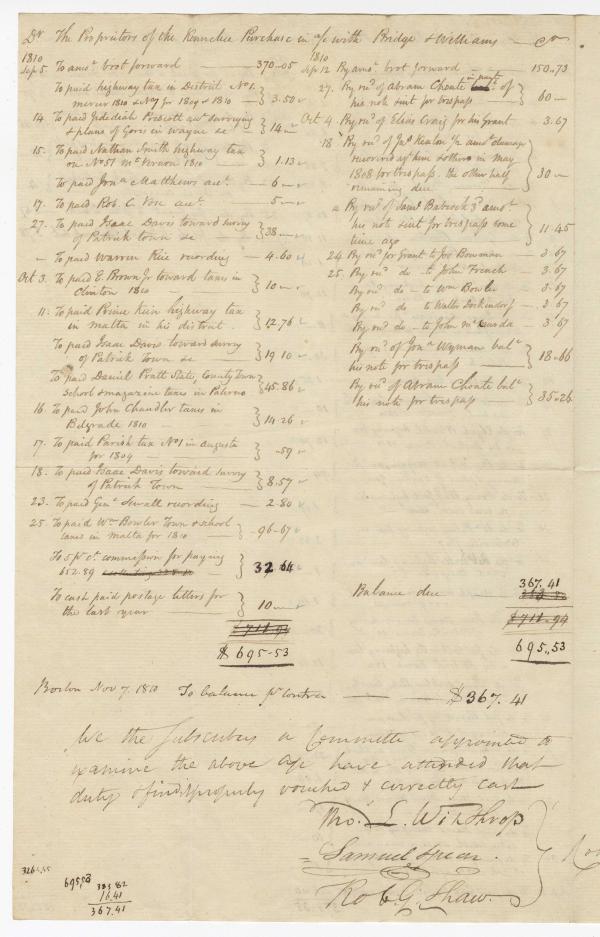 Dr The Proprietors of the Kennebec Purchase in a/c with Bridge & Williams Cr
1810
Sep 5 To amot brot forward 370-05
To paid highway tax in District No 1.
mercer 1810 & No 7 for 1809 & 1810 } 3.50
14. To paid Jedediah Prescott acct surveying
& plans of Gores in Wayne &c } 14
15. To paid Nathan Smith highway tax
on No 51 Mt Vernon 1810 } 1.13
To paid Jona Matthews acct. 6
17. To paid Rob. C. Vose acct. 5
27. To paid Isaac Davis toward survey
of Patrick town &c } 38
" To paid Warren Rice recording 4.60
Oct 3. To paid E. Brown Jr toward taxes in
Clinton 1810 } 10
11. To paid Prince Keen highway tax
in malta in his district } 12.76
To paid Isaac Davis toward survey
of Patrick Town &c } 19 10
To paid Daniel Pratt State, County Town
school & magazine taxes in Palermo } 45.86
16. To paid John Chandler taxes in
Belgrade 1810 } 14.26
17. To paid Parish tax No 1 in augusta
for 1809 } -59
18. To paid Isaac Davis toward survey
of Patrick Town } 8.57
23. To paid Genl Sewall recording 2.80
25. To paid Wm Bowler Town & school
taxes in malta for 1810 } -96-67
To 5 pr ct. commission for paying
652.89 } 32 64
To cash paid postage letters for
the last year } 10
$718.94
$ 695-53
1810
Sep 12 By amot brot forward 150.73
27. By recd of Abram Choate in part of
his note sint for trespass } 60
Oct 4. By recd of Elias Craig for his Grant 3.67
18 By recd of Jas Keaton Jr amot damage
recovered of him & others in May
1808 for trespass. the other half
remaining due } 30
" By recd of Saml Babcock 3d amot
his note sint for trespass some
time ago } 11 45
24 By recd for Grant to Joo Bowman 3.67
25. By recd do - to John French 3.67
By recd do - to Wm Bowler 3.67
By recd do - to Walter Dockendorf 3.67
By recd do - to John 3.67
By recd of Jona Wyman balce
his note for trespass } 18-66
By recd of Abram Choate balce
his note for trespass } 35.26
Balance due 367.41
$718.94
695.53
Boston Nov 7. 1810 To balance pr contra $367.41
We the Subscribers a Committe appointed to
examine the above a/c have attended that
duty & find it properly vouched & correctly cast
Tho. L. Winthrop
Samuel Spear.
Rob. G. Shaw.
695.53
383 82
16.41
367.41